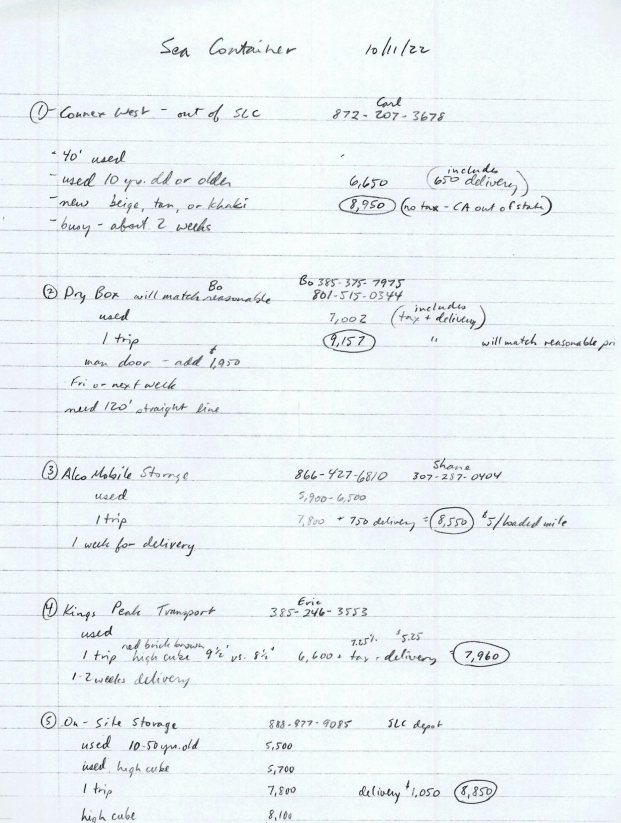 Sea Container 10/11/22
① Connex West - out of SLC Carl 872-207-3678
- 40' used
- used 10 yrs. old or older 6,650 (includes 650 delivery)
- new beige, tan, or khaki 8,950 (no tax - CA out of state)
- busy - about 2 weeks
② Dry Box will match reasonable Bo Bo 385-375-7975
801-515-0344
used 7,002 (includes tax + delivery)
1 trip 9,157 " will match reasonable pri
man door - add $1,950
Fri or next week
need 120' straight line
③ Alco Mobile Storage 866-427-6810 Shane 307-287-0404
used 5,900-6,500
1 trip 7,800 + 750 delivery = 8,550 $5/loaded mile
1 week for delivery
④ Kings Peak Transport Eric 385-246-3553
used
1 trip red brick brown high cube 9½' vs. 8½' 6,600 + tax 7.25% + delivery $5.25 = 7,960
1-2 weeks delivery
⑤ On-Site Storage 888-977-9085 SLC depot
used 10-50 yrs. old 5,500
used high cube 5,700
1 trip 7,800 delivery $1,050 8,850
high cube 8,100